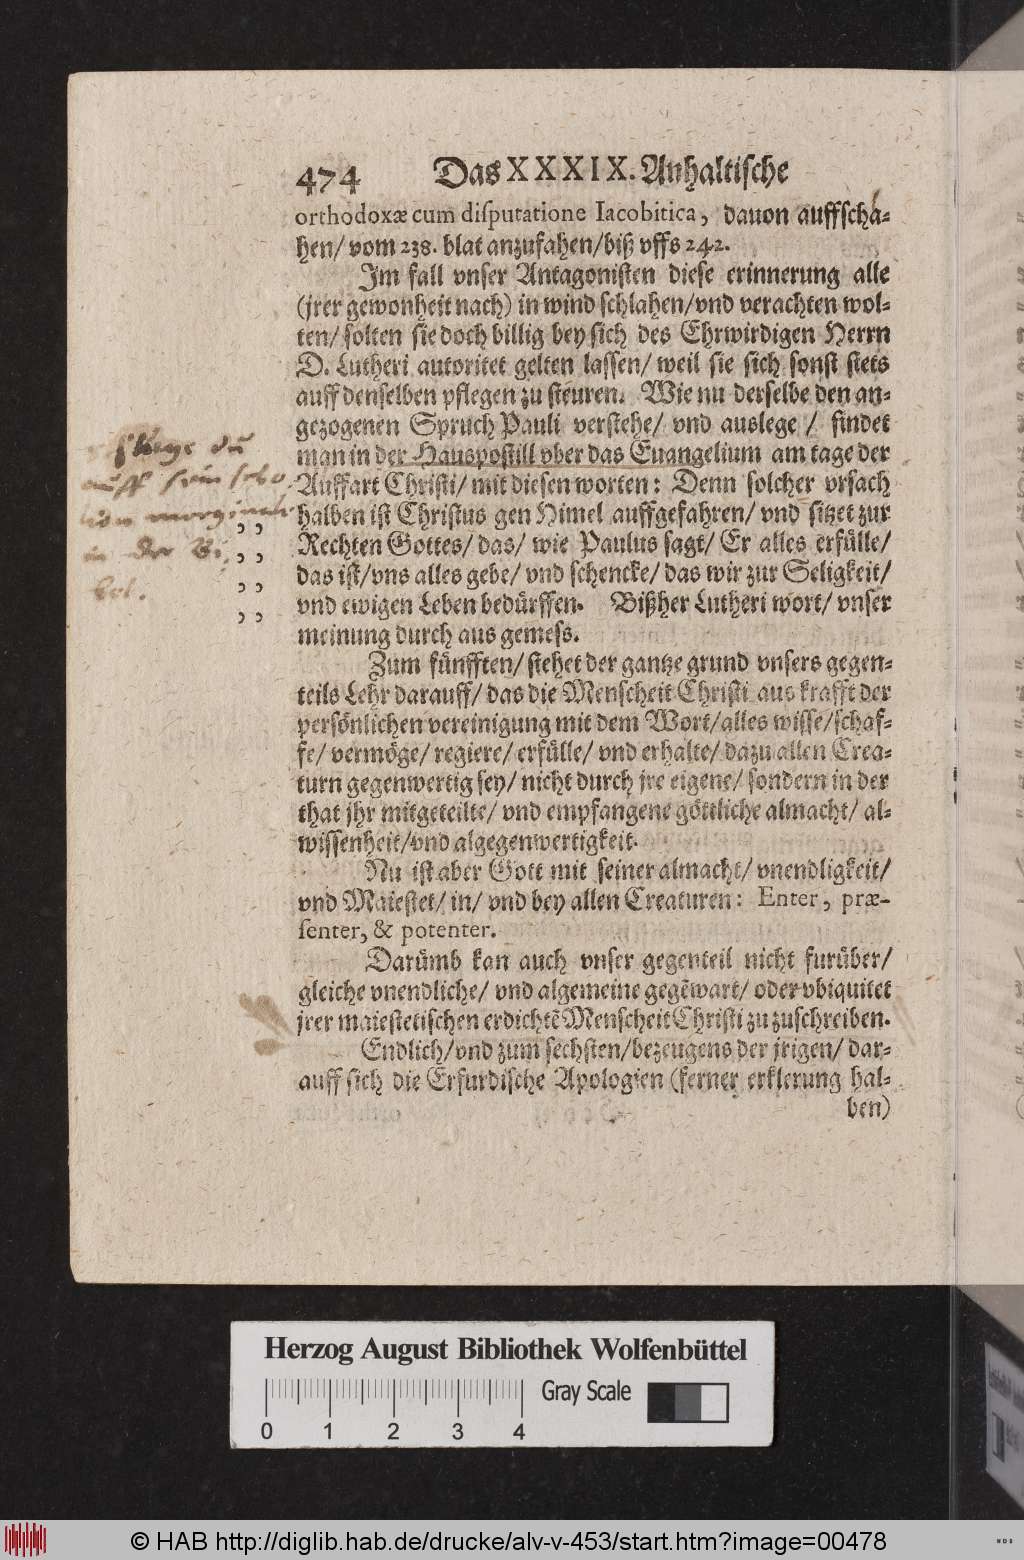 474 Das XXXIX. Anhaltische
orthodoxæ cum disputatione Iacobitica, dauon auffschä-
hen/ vom 238. blat anzufahen/ biß vffs 242.
Im fall vnser Antagonisten diese erinnerung alle
(jrer gewonheit nach) in wind schlahen/ vnd verachten wol-
ten/ solten sie doch billig bey sich des Ehrwirdigen Herrn
D. Lutheri autoritet gelten lassen/ weil sie sich sonst stets
auff denselben pflegen zu steuren. Wie nu derselbe den an-
gezogenen Spruch Pauli verstehe/ vnd auslege / findet
man in der Hauspostill vber das Euangelium am tage der
Auffart Christi/ mit diesen worten: Denn solcher vrsach
halben ist Christus gen Himel auffgefahren/ vnd sitzet zur
Rechten Gottes/ das/ wie Paulus sagt/ Er alles erfülle/
das ist/ vns alles gebe/ vnd schencke/ das wir zur Seligkeit/
vnd ewigen Leben bedürffen. Bißher Lutheri wort/ vnser
meinung durch aus gemess.
du
auff sein
marginal
in der Bi,
bel.
,,
,,
,,
,,
Zum fünfften/ stehet der gantze grund vnsers gegen-
teils Lehr darauff/ das die Menscheit Christi aus krafft der
persönlichen vereinigung mit dem Wort/ alles wisse/ schaf-
fe/ vermöge/ regiere/ erfülle/ vnd erhalte/ dazu allen Crea-
turn gegenwertig sey/ nicht durch jre eigene/ sondern in der
that jhr mitgeteilte/ vnd empfangene göttliche almacht/ al-
wissenheit/ vnd algegenwertigkeit.
Nu ist aber Gott mit seiner almacht/ vnendligkeit/
vnd Maiestet/ in/ vnd bey allen Creaturen: Enter, præ-
senter, & potenter.
Darümb kan auch vnser gegenteil nicht furüber/
gleiche vnendliche/ vnd algemeine gegẽwart/ oder vbiquitet
jrer maiestetischen erdichtẽ Menscheit Christi zu zuschreiben.
Endlich/ vnd zum sechsten/ bezeugens der jrigen/ dar-
auff sich die Erfurdische Apologien (ferner erklerung hal-
ben)
Herzog August Bibliothek Wolfenbüttel
Gray Scale
0 1 2 3 4
© HAB http://diglib.hab.de/drucke/alv-v-453/start.htm?image=00478